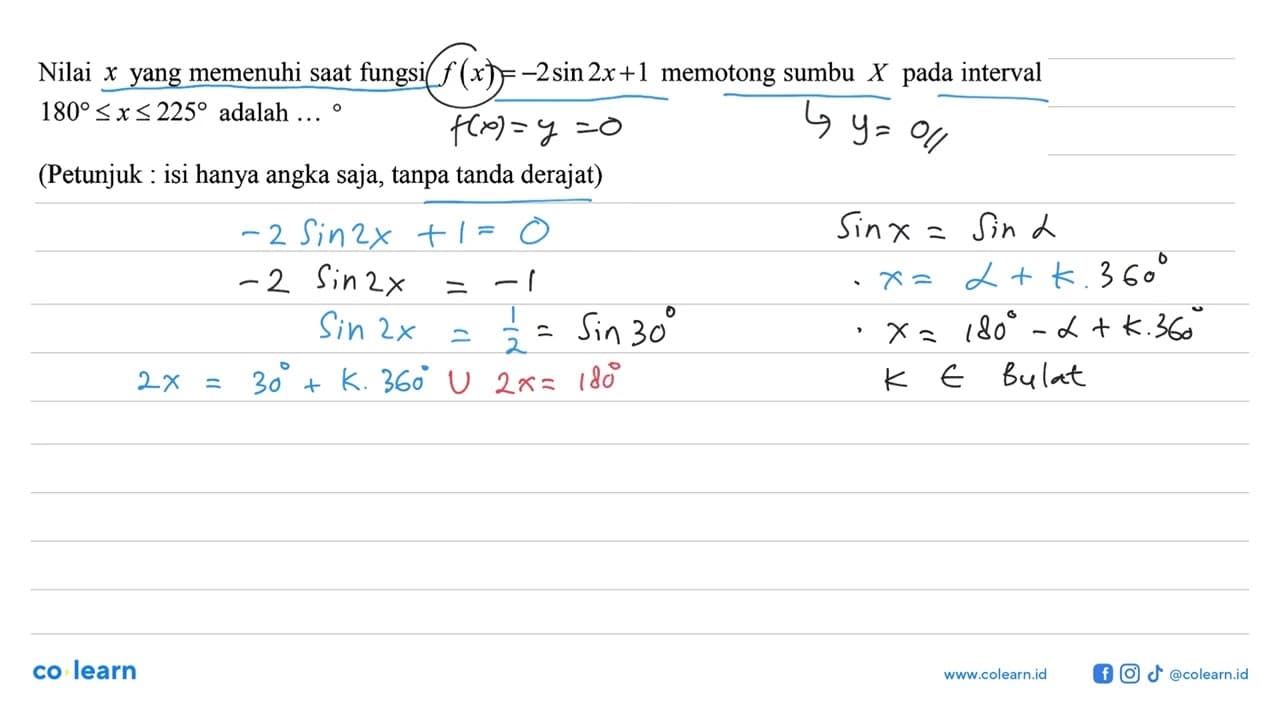 Nilai x yang memenuhi saat fungsi f(x)=-2sin2x+1 memotong sumbu X pada interval
180°≤x≤225° adalah ... °
f(x) = y = 0
↳ y = 0//
(Petunjuk : isi hanya angka saja, tanpa tanda derajat)
-2 Sin2x + 1 = 0
Sin x = Sin α
-2 Sin2x = -1
. x = α + k. 360°
Sin 2x = 1/2 = Sin 30°
. x = 180° - α + k.360°
2x = 30° + k. 360° ∪ 2x = 180°
k ∈ Bulat
co learn
www.colearn.id
@colearn.id